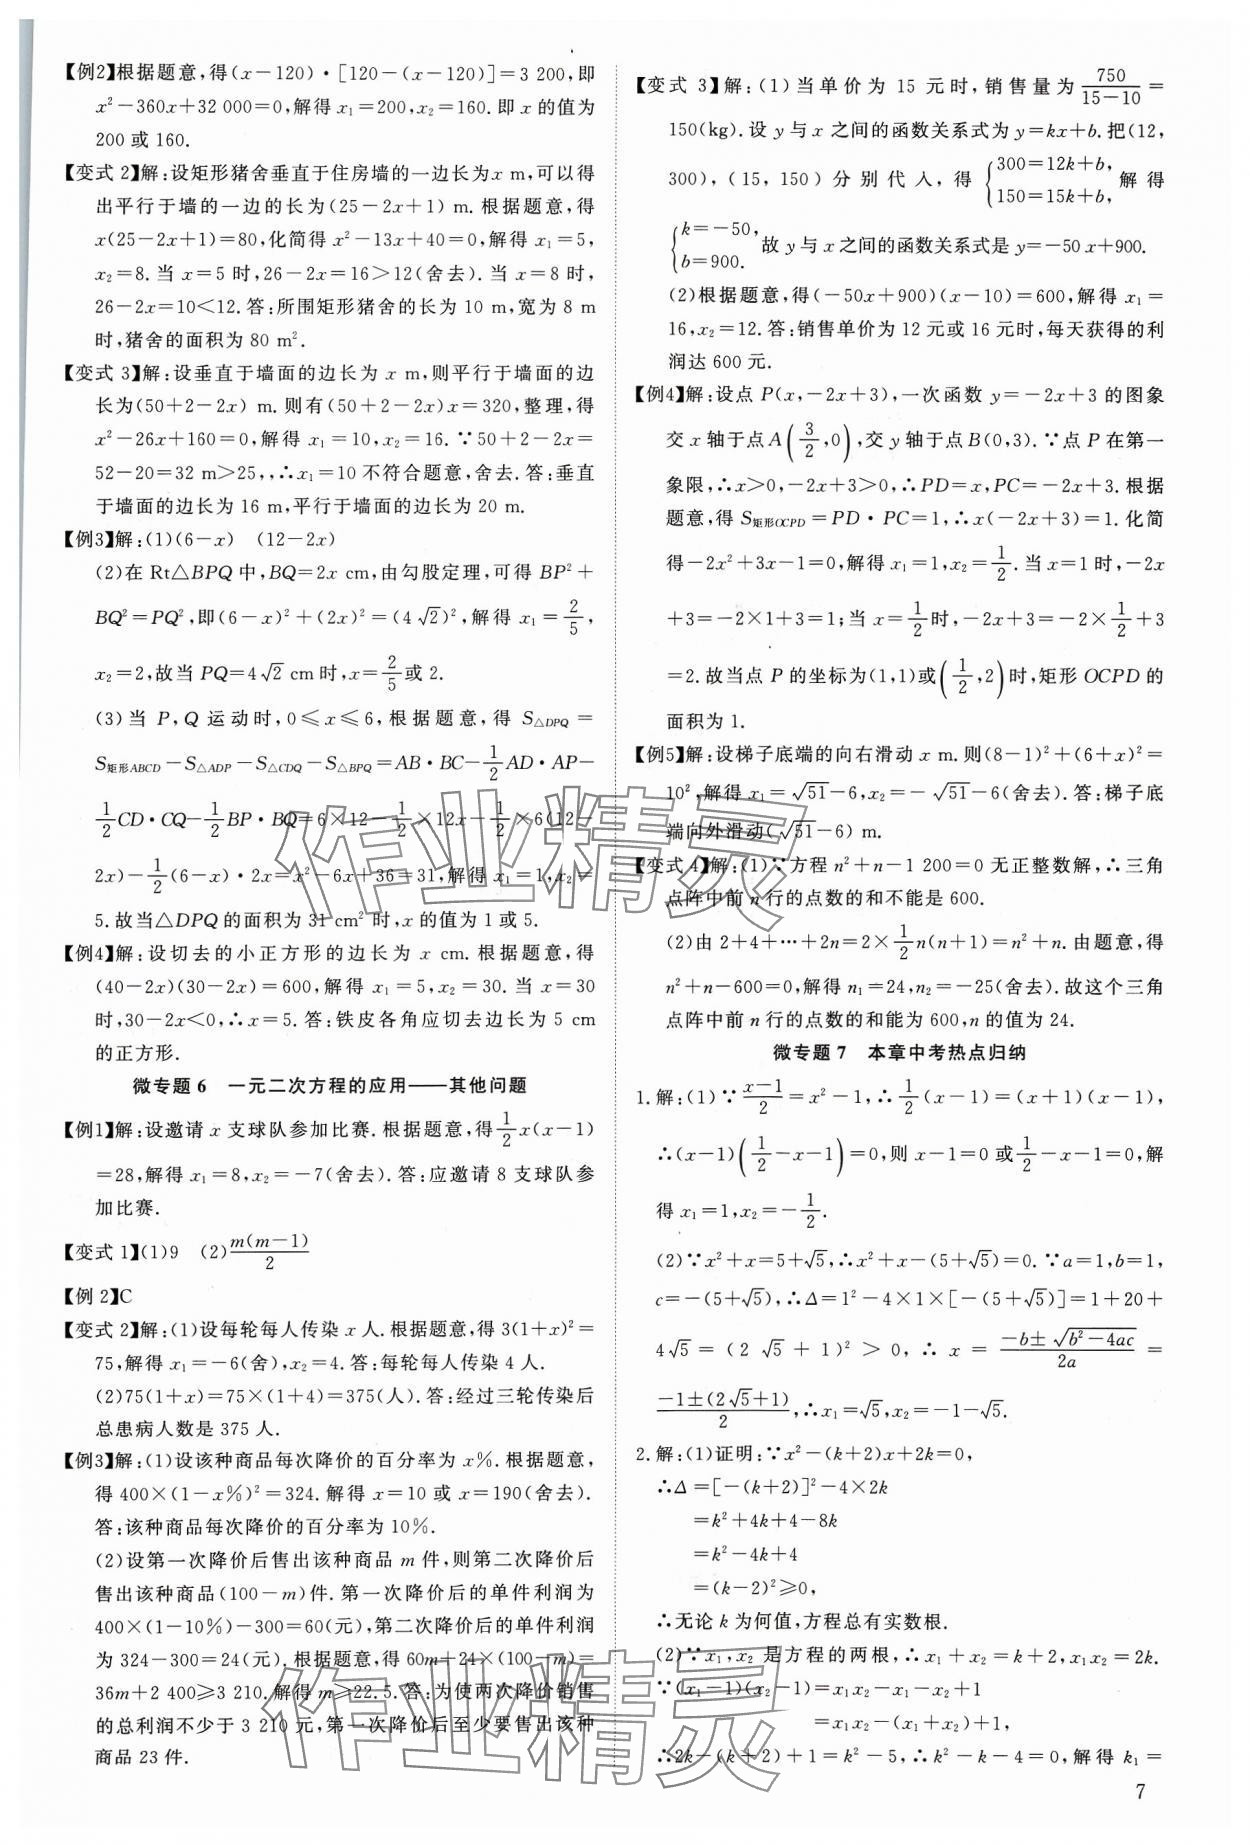 【例2】根据题意,得(x-120)·[120-(x-120)]=3 200,即
x²-360x+32 000=0,解得 x₁=200,x₂=160.即 x 的值为
200 或 160.
【变式 2】解:设矩形猪舍垂直于住房墙的一边长为x m,可以得
出平行于墙的一边的长为(25-2x+1) m.根据题意,得
x(25-2x+1)=80,化简得 x²-13x+40=0,解得 x₁=5,
x₂=8.当 x=5 时,26-2x=16>12(舍去).当 x=8 时,
26-2x=10<12.答:所围矩形猪舍的长为 10 m,宽为 8 m
时,猪舍的面积为 80 m².
【变式 3】解:设垂直于墙面的边长为 x m,则平行于墙面的边
长为(50+2-2x) m.则有(50+2-2x)x=320,整理,得
x²-26x+160=0,解得 x₁=10,x₂=16.∵50+2-2x=
52-20=32 m>25,,∴x₁=10 不符合题意,舍去.答:垂直
于墙面的边长为 16 m,平行于墙面的边长为 20 m.
【例3】解:(1)(6-x) (12-2x)
(2)在 Rt△BPQ 中,BQ=2x cm,由勾股定理,可得 BP²+
BQ²=PQ²,即(6-x)²+(2x)²=(4√2)²,解得 x₁=2/5,
x₂=2,故当 PQ=4√2 cm时,x=2/5或 2.
(3)当 P,Q 运动时,0≤x≤6,根据题意,得 S△DPQ=
S矩形ABCD-S△ADP-S△CDQ-S△BPQ=AB·BC-1/2AD·AP-
1/2CD·CQ-1/2BP·BQ=6×12-1/2×12x-1/2×6(12-
2x)-1/2(6-x)·2x=x²-6x+36=31,解得 x₁=1,x₂=
5.故当△DPQ的面积为 31 cm²时,x 的值为 1 或 5.
【例4】解:设切去的小正方形的边长为 x cm.根据题意,得
(40-2x)(30-2x)=600,解得 x₁=5,x₂=30.当 x=30
时,30-2x<0,∴x=5.答:铁皮各角应切去边长为 5 cm
的正方形.
微专题 6 一元二次方程的应用——其他问题
【例1】解:设邀请 x 支球队参加比赛.根据题意,得1/2x(x-1)
=28,解得 x₁=8,x₂=-7(舍去).答:应邀请 8 支球队参
加比赛.
【变式 1】(1)9 (2)m(m-1)/2
【例 2】C
【变式 2】解:(1)设每轮每人传染 x 人.根据题意,得 3(1+x)²=
75,解得 x₁=-6(舍),x₂=4.答:每轮每人传染 4 人.
(2)75(1+x)=75×(1+4)=375(人).答:经过三轮传染后
总患病人数是 375 人.
【例3】解:(1)设该种商品每次降价的百分率为 x%.根据题意,
得 400×(1-x%)²=324.解得 x=10 或 x=190(舍去).
答:该种商品每次降价的百分率为 10%.
(2)设第一次降价后售出该种商品 m 件,则第二次降价后
售出该种商品(100-m)件.第一次降价后的单件利润为
400×(1-10%)-300=60(元),第二次降价后的单件利润
为 324-300=24(元).根据题意,得 60m+24×(100-m)=
36m+2 400≥3 210.解得 m≥22.5.答:为使两次降价销售
的总利润不少于 3 210 元,第一次降价后至少要售出该种
商品 23 件.
【变式 3】解:(1)当单价为 15 元时,销售量为750/(15-10)=
150(kg).设 y 与 x 之间的函数关系式为 y=kx+b.把(12,
300),(15,150)分别代入,得{300=12k+b,150=15k+b,解得
{k=-50,b=900.故 y 与 x 之间的函数关系式是 y=-50x+900.
(2)根据题意,得(-50x+900)(x-10)=600,解得 x₁=
16,x₂=12.答:销售单价为 12 元或 16 元时,每天获得的利
润达 600 元.
【例4】解:设点 P(x,-2x+3),一次函数 y=-2x+3 的图象
交 x 轴于点A(3/2,0),交 y 轴于点B(0,3).∵点 P 在第一
象限,∴x>0,-2x+3>0,∴PD=x,PC=-2x+3.根据
题意,得 S矩形OCPD=PD·PC=1,∴x(-2x+3)=1.化简
得-2x²+3x-1=0,解得 x₁=1,x₂=1/2.当 x=1时,-2x
+3=-2×1+3=1;当 x=1/2时,-2x+3=-2×1/2+3
=2.故当点 P 的坐标为(1,1)或(1/2,2)时,矩形 OCPD 的
面积为 1.
【例5】解:设梯子底端的向右滑动 x m.则(8-1)²+(6+x)²=
10²,解得 x₁=√51-6,x₂=-√51-6(舍去).答:梯子底
端向外滑动(√51-6) m.
【变式 4】解:(1)∵方程 n²+n-1 200=0 无正整数解,∴三角
点阵中前 n 行的点数的和不能是 600.
(2)由 2+4+…+2n=2×1/2n(n+1)=n²+n.由题意,得
n²+n-600=0,解得 n₁=24,n₂=-25(舍去).故这个三角
点阵中前 n 行的点数的和能为 600,n 的值为 24.
微专题 7 本章中考热点归纳
1.解:(1)∵(x-1)/2=x²-1,∴1/2(x-1)=(x+1)(x-1),
∴(x-1)(1/2-x-1)=0,则 x-1=0 或1/2-x-1=0,解
得 x₁=1,x₂=-1/2.
(2)∵x²+x=5+√5,∴x²+x-(5+√5)=0.∵a=1,b=1,
c=-(5+√5),∴Δ=1²-4×1×[-(5+√5)]=1+20+
4√5=(2√5+1)²>0,∴x=(-b±√(b²-4ac))/2a=
(-1±(2√5+1))/2,∴x₁=√5,x₂=-1-√5.
2.解:(1)证明:∵x²-(k+2)x+2k=0,
∴Δ=[-(k+2)]²-4×2k
=k²+4k+4-8k
=k²-4k+4
=(k-2)²≥0,
∴无论 k 为何值,方程总有实数根.
(2)∵x₁,x₂ 是方程的两根,∴x₁+x₂=k+2,x₁x₂=2k.
∵(x₁-1)(x₂-1)=x₁x₂-x₁-x₂+1
=x₁x₂-(x₁+x₂)+1,
∴2k-(k+2)+1=k²-5,∴k²-k-4=0,解得 k₁=
7
作业精灵
作业精灵